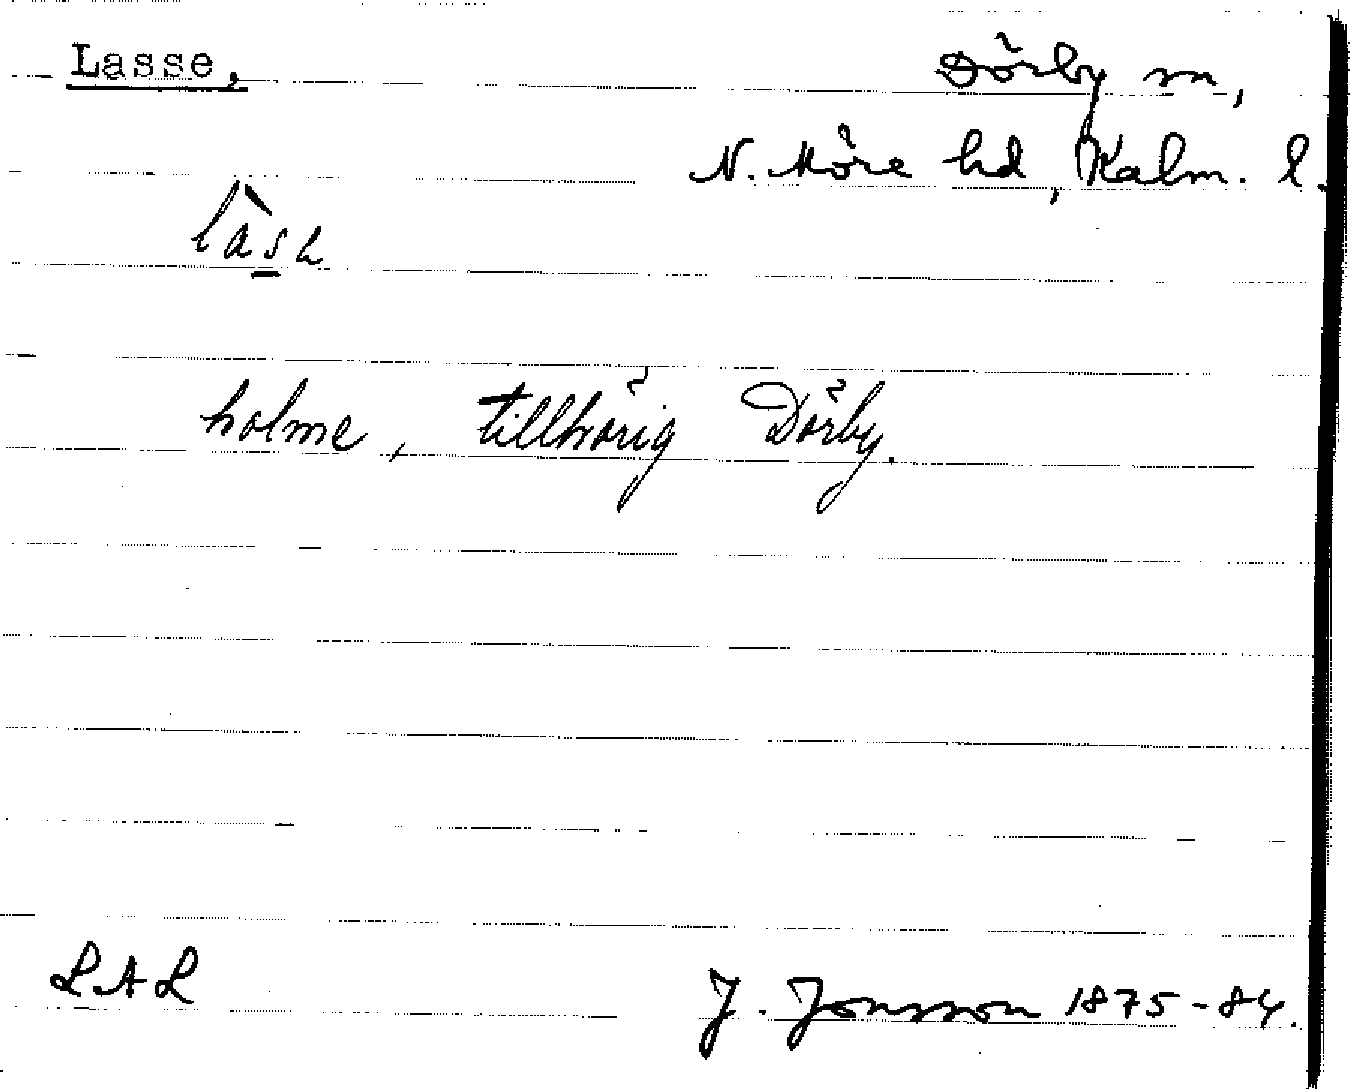 Lasse,
Dörby sn,
N. Möre hd, Kalm. l.
làsa
holme, tillhörig Dörby.
LAL
J. Jonsson 1875-84.